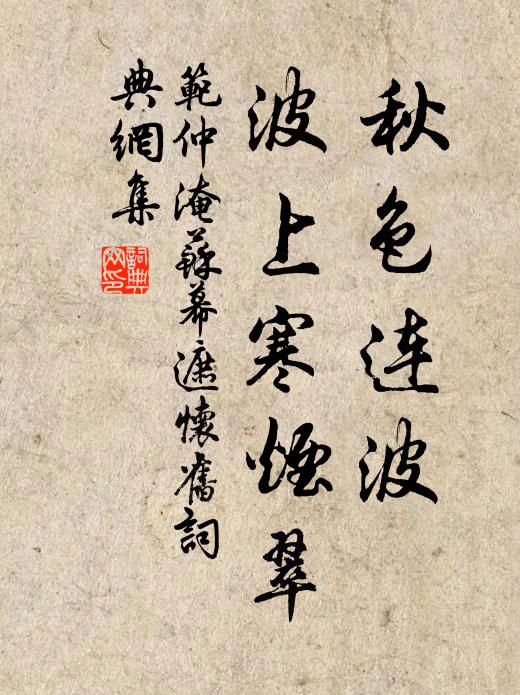 秋色连波
波上寒煙翠
範仲淹蘇幕遮懷舊詞
典網集
詞典